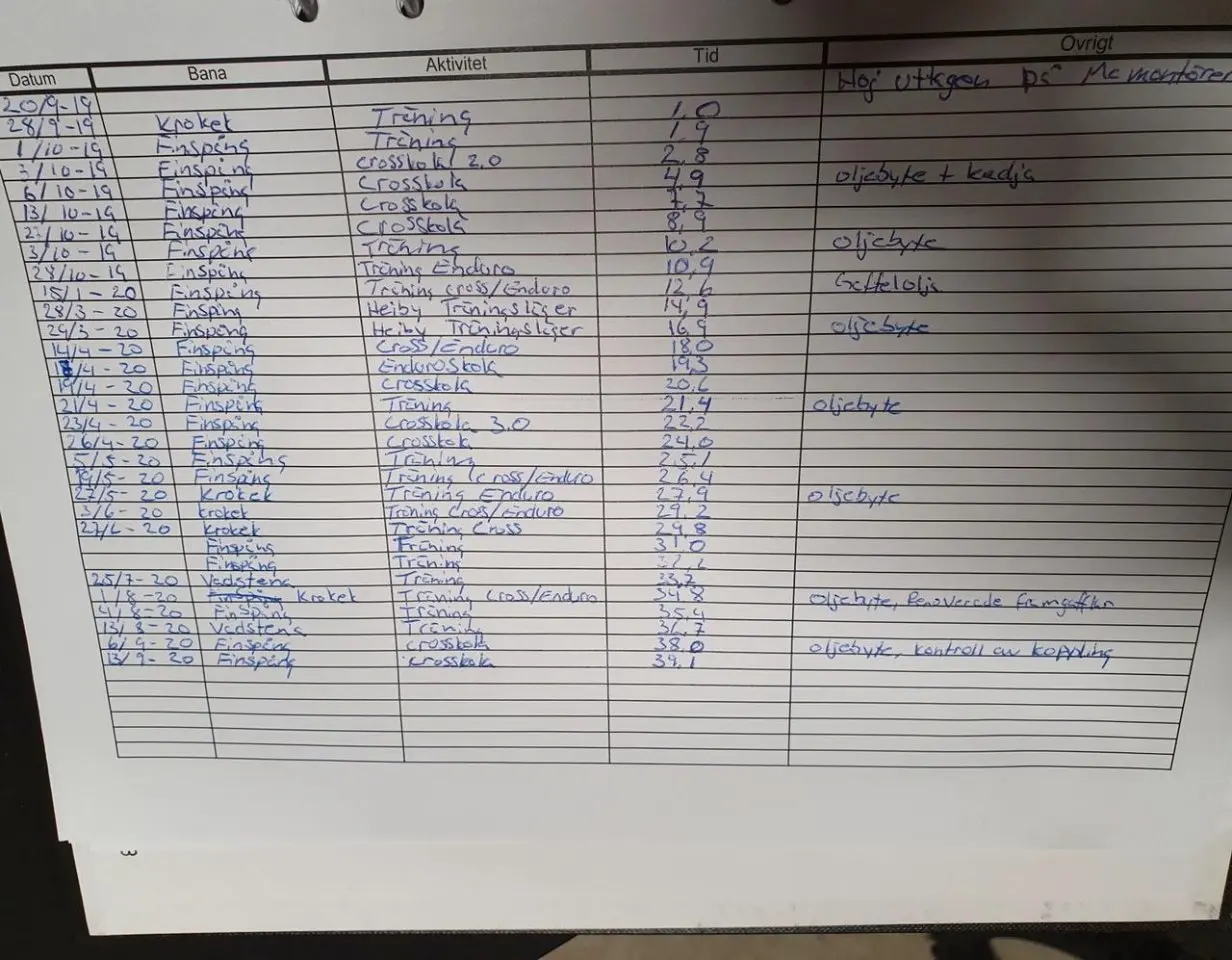 Datum Bana Aktivitet Tid Övrigt
20/9-19 Hoj uthgen på Mc montören
28/9-19 Kroket Träning 1,0
1/10-19 Finspång Träning 1,9
3/10-19 Finspång Crosskola 2.0 2,8
6/10-19 Finspång Crosskola 4,9 oljebyte + kedja
13/10-19 Finspång Crosskola 7,7
/10-19 Finspång Crosskola 8,9
3/10-19 Finspång Träning 10,2 oljebyte
28/10-19 Finspång Träning Enduro 10,9
15/1-20 Finspång Träning cross/Enduro 12,6 Gaffelolja
28/3-20 Finspång Heiby Träningsläger 14,9
29/3-20 Finspång Heiby Träningsläger 16,9 oljebyte
14/4-20 Finspång Cross/Enduro 18,0
/4-20 Finspång Enduroskola 19,3
19/4-20 Finspång Crosskola 20,6
21/4-20 Finspång Träning 21,4 oljebyte
23/4-20 Finspång Crosskola 3.0 22,2
26/4-20 Finspång Crosskola 24,0
5/5-20 Finspång Träning 25,1
19/5-20 Finspång Träning Cross/Enduro 26,4
27/5-20 Kroket Träning Enduro 27,9 oljebyte
3/6-20 Kroket Träning Cross/Enduro 29,2
27/6-20 Kroket Träning Cross 29,8
Finspång Träning 31,0
Finspång Träning 32,2
25/7-20 Vadstena Träning 33,2
1/8-20 Finspång Kroket Träning Cross/Enduro 34,8 Oljebyte, Renoverade framgafflar
4/8-20 Finspång Träning 35,4
13/8-20 Vadstena Träning 36,7
6/9-20 Finspång crosskola 38,0 oljebyte, kontroll av koppling
13/9-20 Finspång crosskola 39,1
3